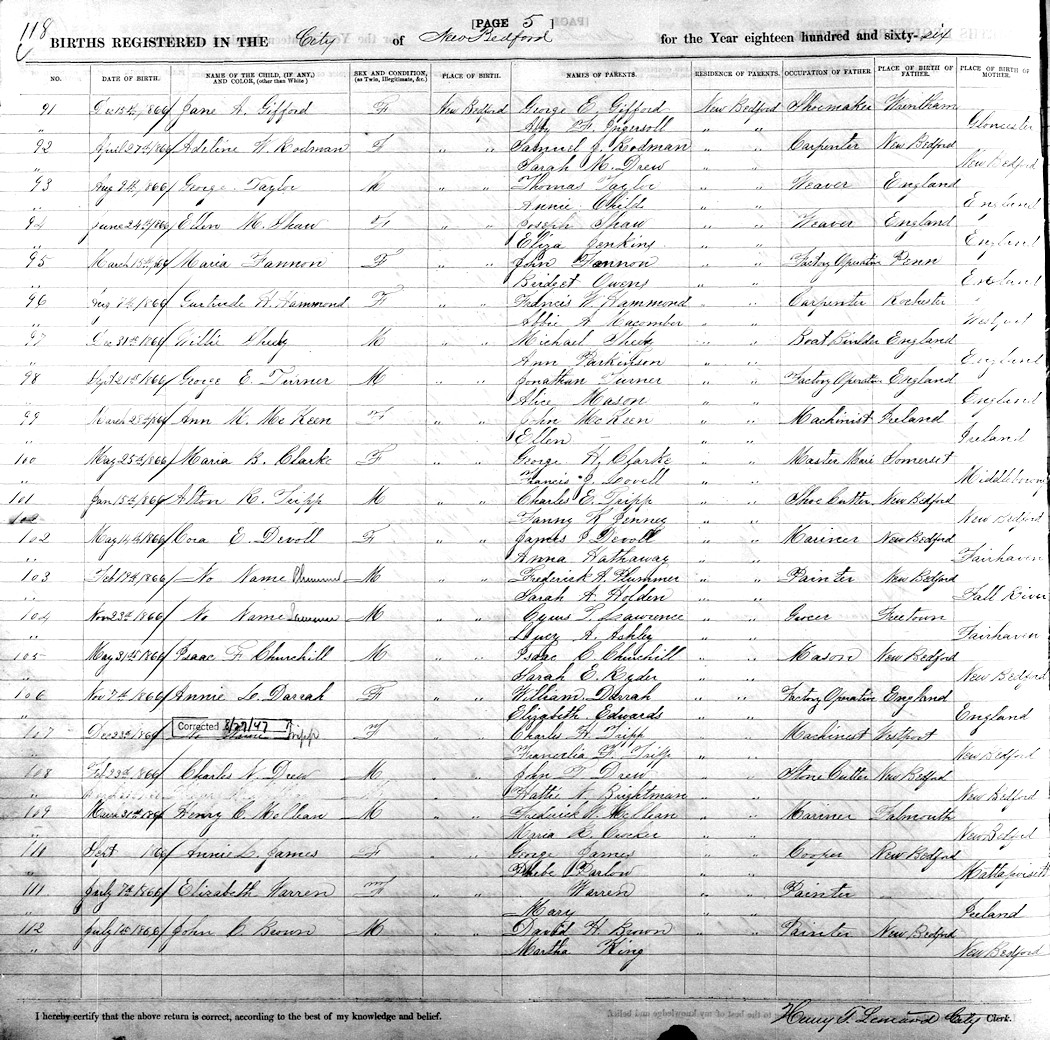 118
[PAGE 5 ]
BIRTHS REGISTERED IN THE City of New Bedford for the Year eighteen hundred and sixty-six
NO. DATE OF BIRTH. NAME OF THE CHILD, (IF ANY,) AND COLOR, (other than White) SEX AND CONDITION, (as Twin, Illegitimate, &c.) PLACE OF BIRTH. NAMES OF PARENTS. RESIDENCE OF PARENTS. OCCUPATION OF FATHER PLACE OF BIRTH OF FATHER. PLACE OF BIRTH OF MOTHER.
91 Dec 15th/1866 Jane A. Gifford F New Bedford George E. Gifford New Bedford Shoemaker Wrentham
" Ingersoll " " Gloucester
92 April 27th/1866 Adeline W. Rodman F " " Samuel J. Rodman " " Carpenter New Bedford
" Sarah M. Drew " " New Bedford
93 Aug 9th/1866 George Taylor M " " Thomas Taylor " " Weaver England
" Annie Childs " " England
94 June 24th/1866 Ellen M. Shaw F " " Joseph Shaw " " Weaver England
" Eliza Jenkins " " England
95 March 15th/66 Maria Fannon F " " John Fannon " " Factory Operative Penn
" Bridget Owens " " England
96 Aug 7th/1866 Gertrude H. Hammond F " " Francis W. Hammond " " Carpenter Rochester
" Abbie A. Macomber " " Westport
97 Dec 31st/1866 Willie M " " Michael " " Boat Builder England
" Ann Parkinson " " England
98 Sept 21st/1866 George E. Turner M " " Jonathan Turner " " Factory Operative England
" Alice Mason " " England
99 March 28th/66 Ann M. McKeen F " " John McKeen " " Machinist Ireland
" Ellen " " Ireland
100 May 25th/1866 Maria B. Clarke F " " George H. Clarke " " Master Mari Somerset
" Francis J. Lovell " " Middleborough
101 Jan 15th/1866 Alton R. Tripp M " " Charles E. Tripp " " Shoe Cutter New Bedford
102 Fanny K. Jenney " " New Bedford
102 May 14th/1866 Cora E. Devoll F " " James J. Devoll " " Mariner New Bedford
" Anna Hathaway " " Fairhaven
103 Feb 19th/1866 No Name Plummer M " " Frederick A. Plummer " " Painter New Bedford
" Sarah A. Holden " " Fall River
104 Nov 23rd/1866 No Name M " " Cyrus T. Lawrence " " Grocer Freetown
" Lucy A. Ashley " " Fairhaven
105 May 31st/1866 Isaac F. Churchill M " " Isaac C. Churchill " " Mason New Bedford
" Sarah E. Ryder " " New Bedford
106 Nov 7th/1866 Annie L. Darrah F " " William Darrah " " Factory Operative England
" Elizabeth Edwards " " England
Corrected 8/27/47
107 Dec 23rd/1866 No Name Tripp F " " Charles H. Tripp " " Machinist Westport
" Tripp " " New Bedford
108 Feb 23rd/1866 Charles N. Drew M " " John T. Drew " " Stone Cutter New Bedford
" Hattie N. Brightman " " New Bedford
109 March 31st/1866 Henry C. M " " Fredrick " " Mariner Falmouth
" Maria R. Crocker " " New Bedford
110 Sept 1866 Annie L. James F " " George James " " Cooper New Bedford
" Phebe Parlow " " Mattapoisett
111 July 7th/1866 Elizabeth Warren F " " Warren " " Painter
" Mary " " Ireland
112 July 1st/1866 John C. Brown M " " David H. Brown " " Painter New Bedford
" Martha King New Bedford
I hereby certify that the above return is correct, according to the best of my knowledge and belief.
Henry T. Leonard City Clerk.